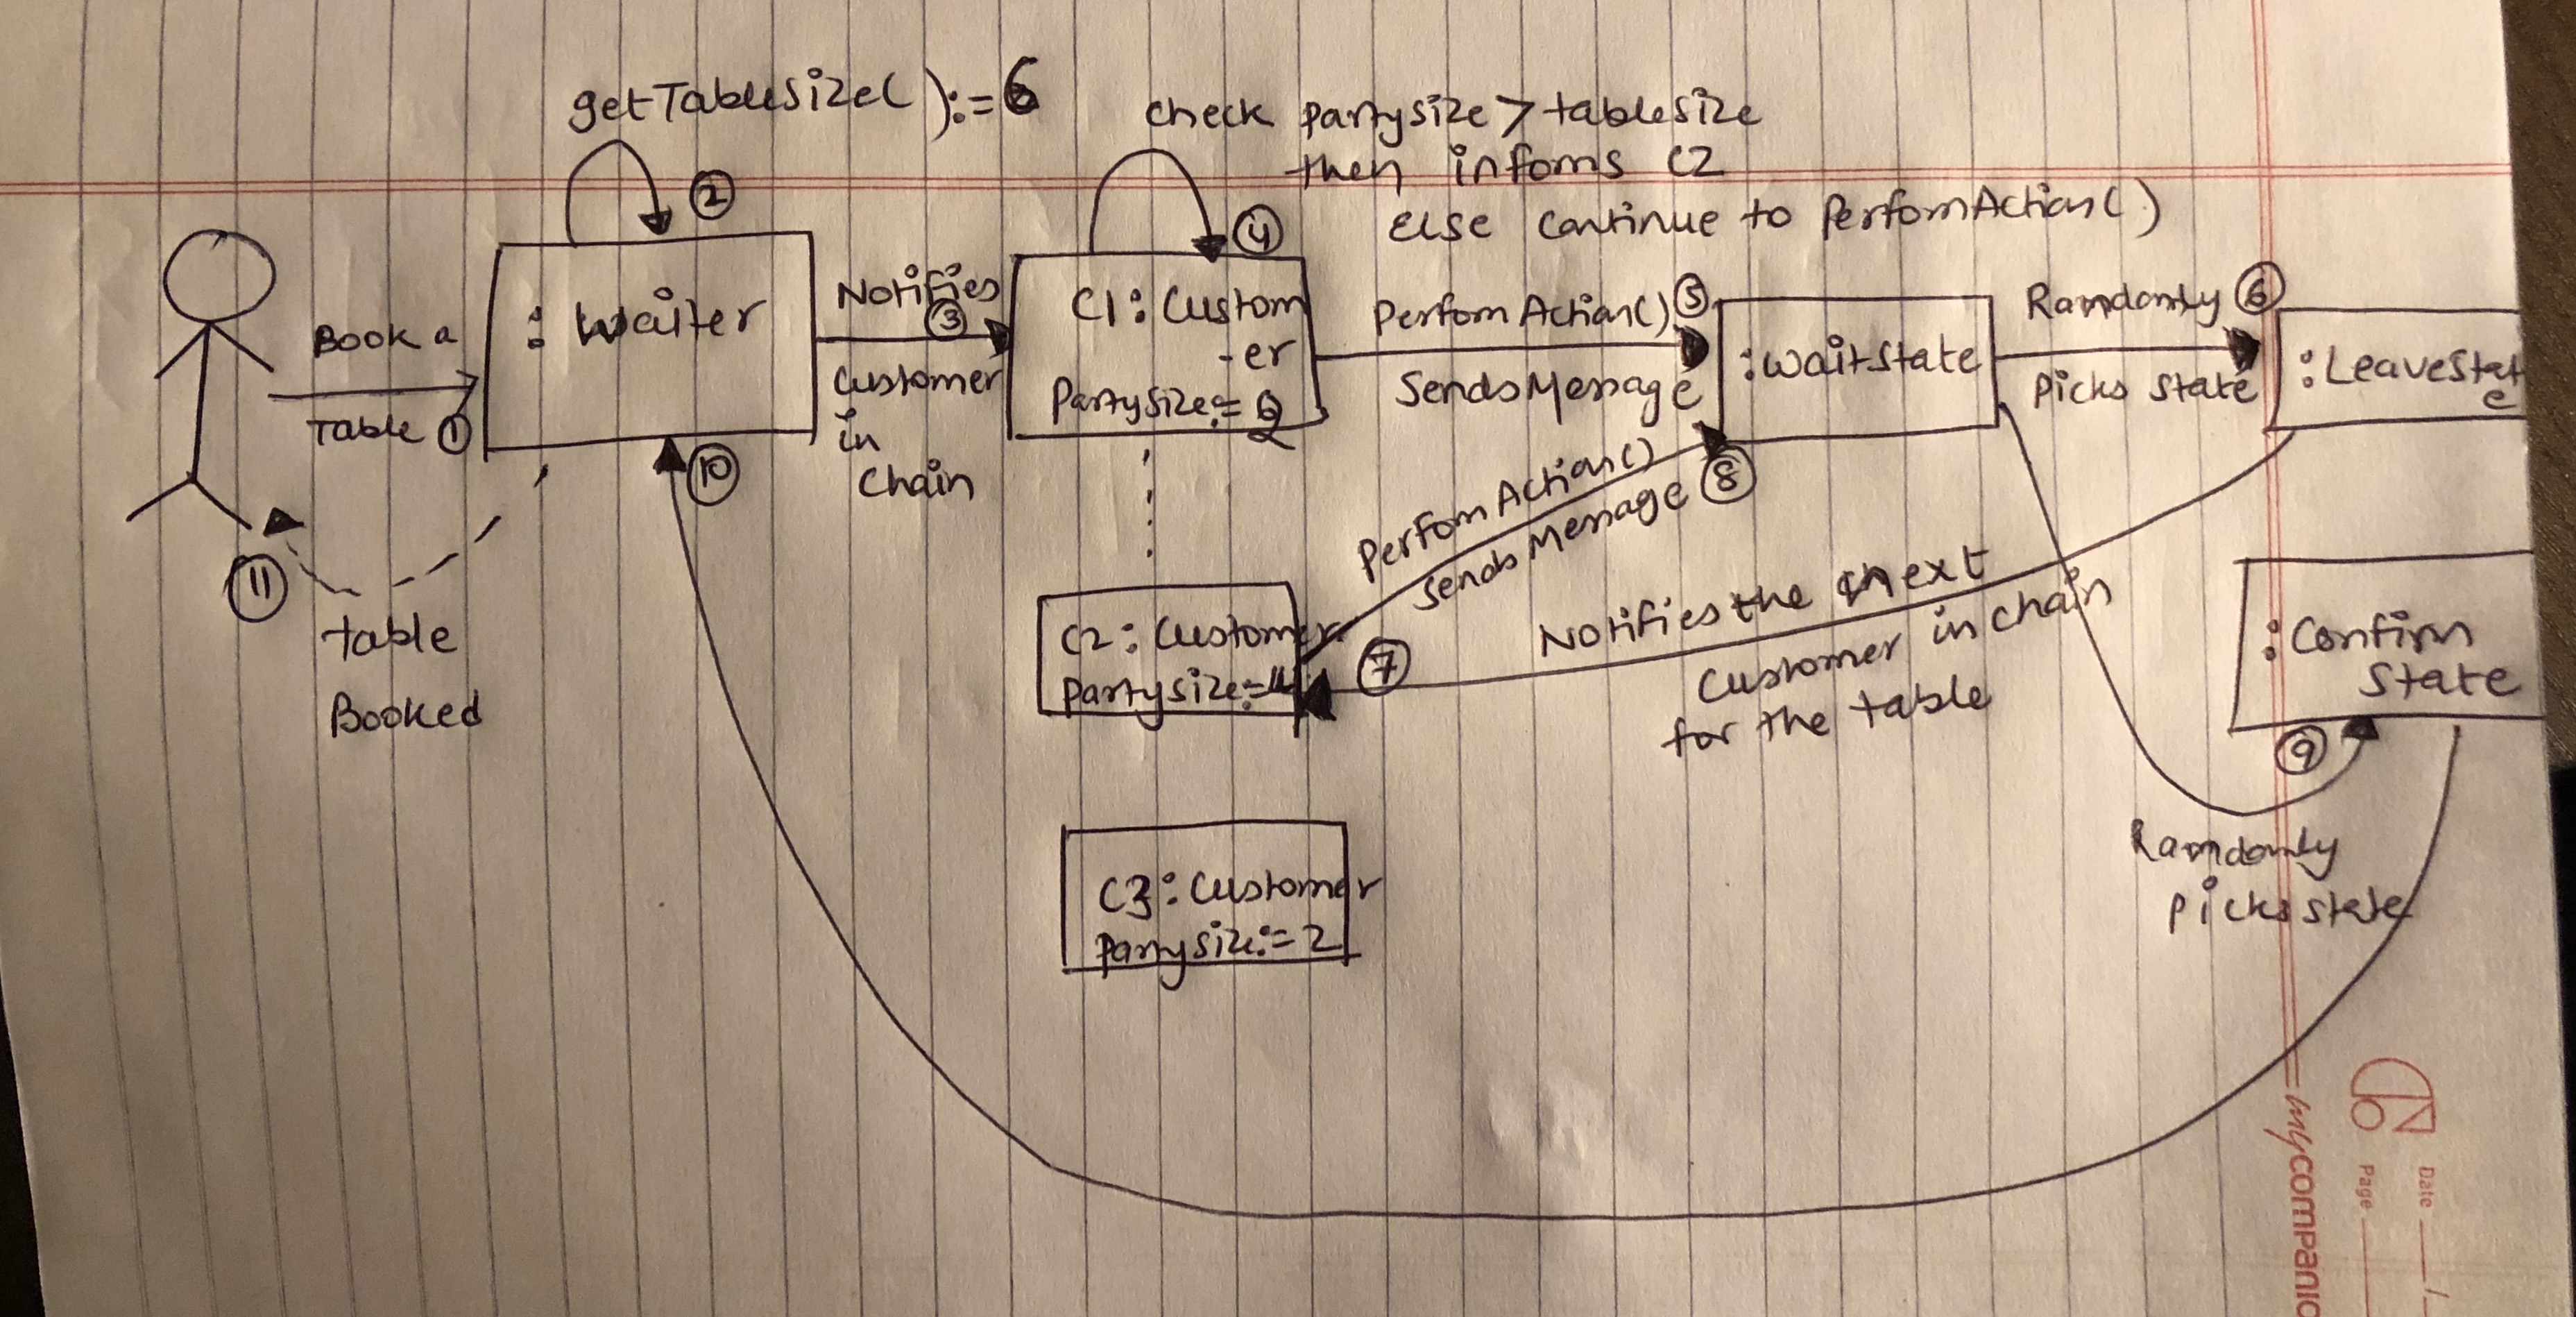 getTableSize( ):=6
check partysize > tablesize
then infoms C2
else continue to PerfomAction( )
②
④
Book a
Table ①
: Waiter
Notifies
③
Customer
in
Chain
C1: Custom
-er
Partysize:=
Perfom Action() ⑤
Sends Message
:WaitState
Randomly ⑥
Picks State
:LeaveStat
e
⑩
Perfom Action()
Sends Message ⑧
⑪
table
Booked
C2: Customer
Partysize:=4
⑦
Notifies the next
Customer in chain
for the table
:Confirm
State
⑨
Ramdomly
picks state
C3: Customer
Partysize:=2
mycompanio
Date
Page